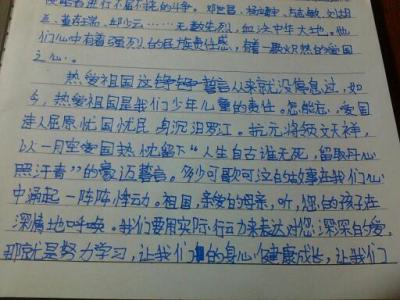 侵略者进行不屈不挠的斗争。邓世昌、杨靖宇、左志敏、刘胡
兰、董存瑞、邱少云……无数先烈,血洒中华大地。他
们心中有着强烈的民族责任感,有着一颗火热的爱国
之心。
热爱祖国这铮铮誓言从来就没停息过,如
今,热爱祖国是我们少年儿童的责任。怎能忘,爱国
诗人屈原忧国忧民身沉汨罗江。抗元将领文天祥,
以一身爱国热忱留下“人生自古谁无死,留取丹心
照汗青”的豪迈誓言。多少可歌可泣的故事在我们心
中涌起一阵阵悸动。祖国,亲爱的母亲,听,您的孩子在
深情地呼唤。我们要用实际行动来表达对您深深的爱,
那就是努力学习,让我们的身心健康成长,让我们